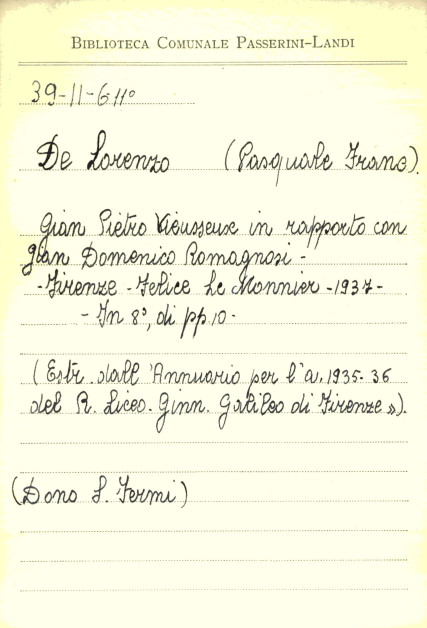 BIBLIOTECA COMUNALE PASSERINI-LANDI
39-11-6 11°
De Lorenzo (Pasquale Franc).
Gian Pietro Vieusseux in rapporto con
Gian Domenico Romagnosi -
- Firenze - Felice Le Monnier - 1937 -
- In 8°, di pp. 10 -
(Estr. dall'Annuario per l'a. 1935-36
del R. Liceo. Ginn. Galileo di Firenze »).
(Dono S. Fermi)